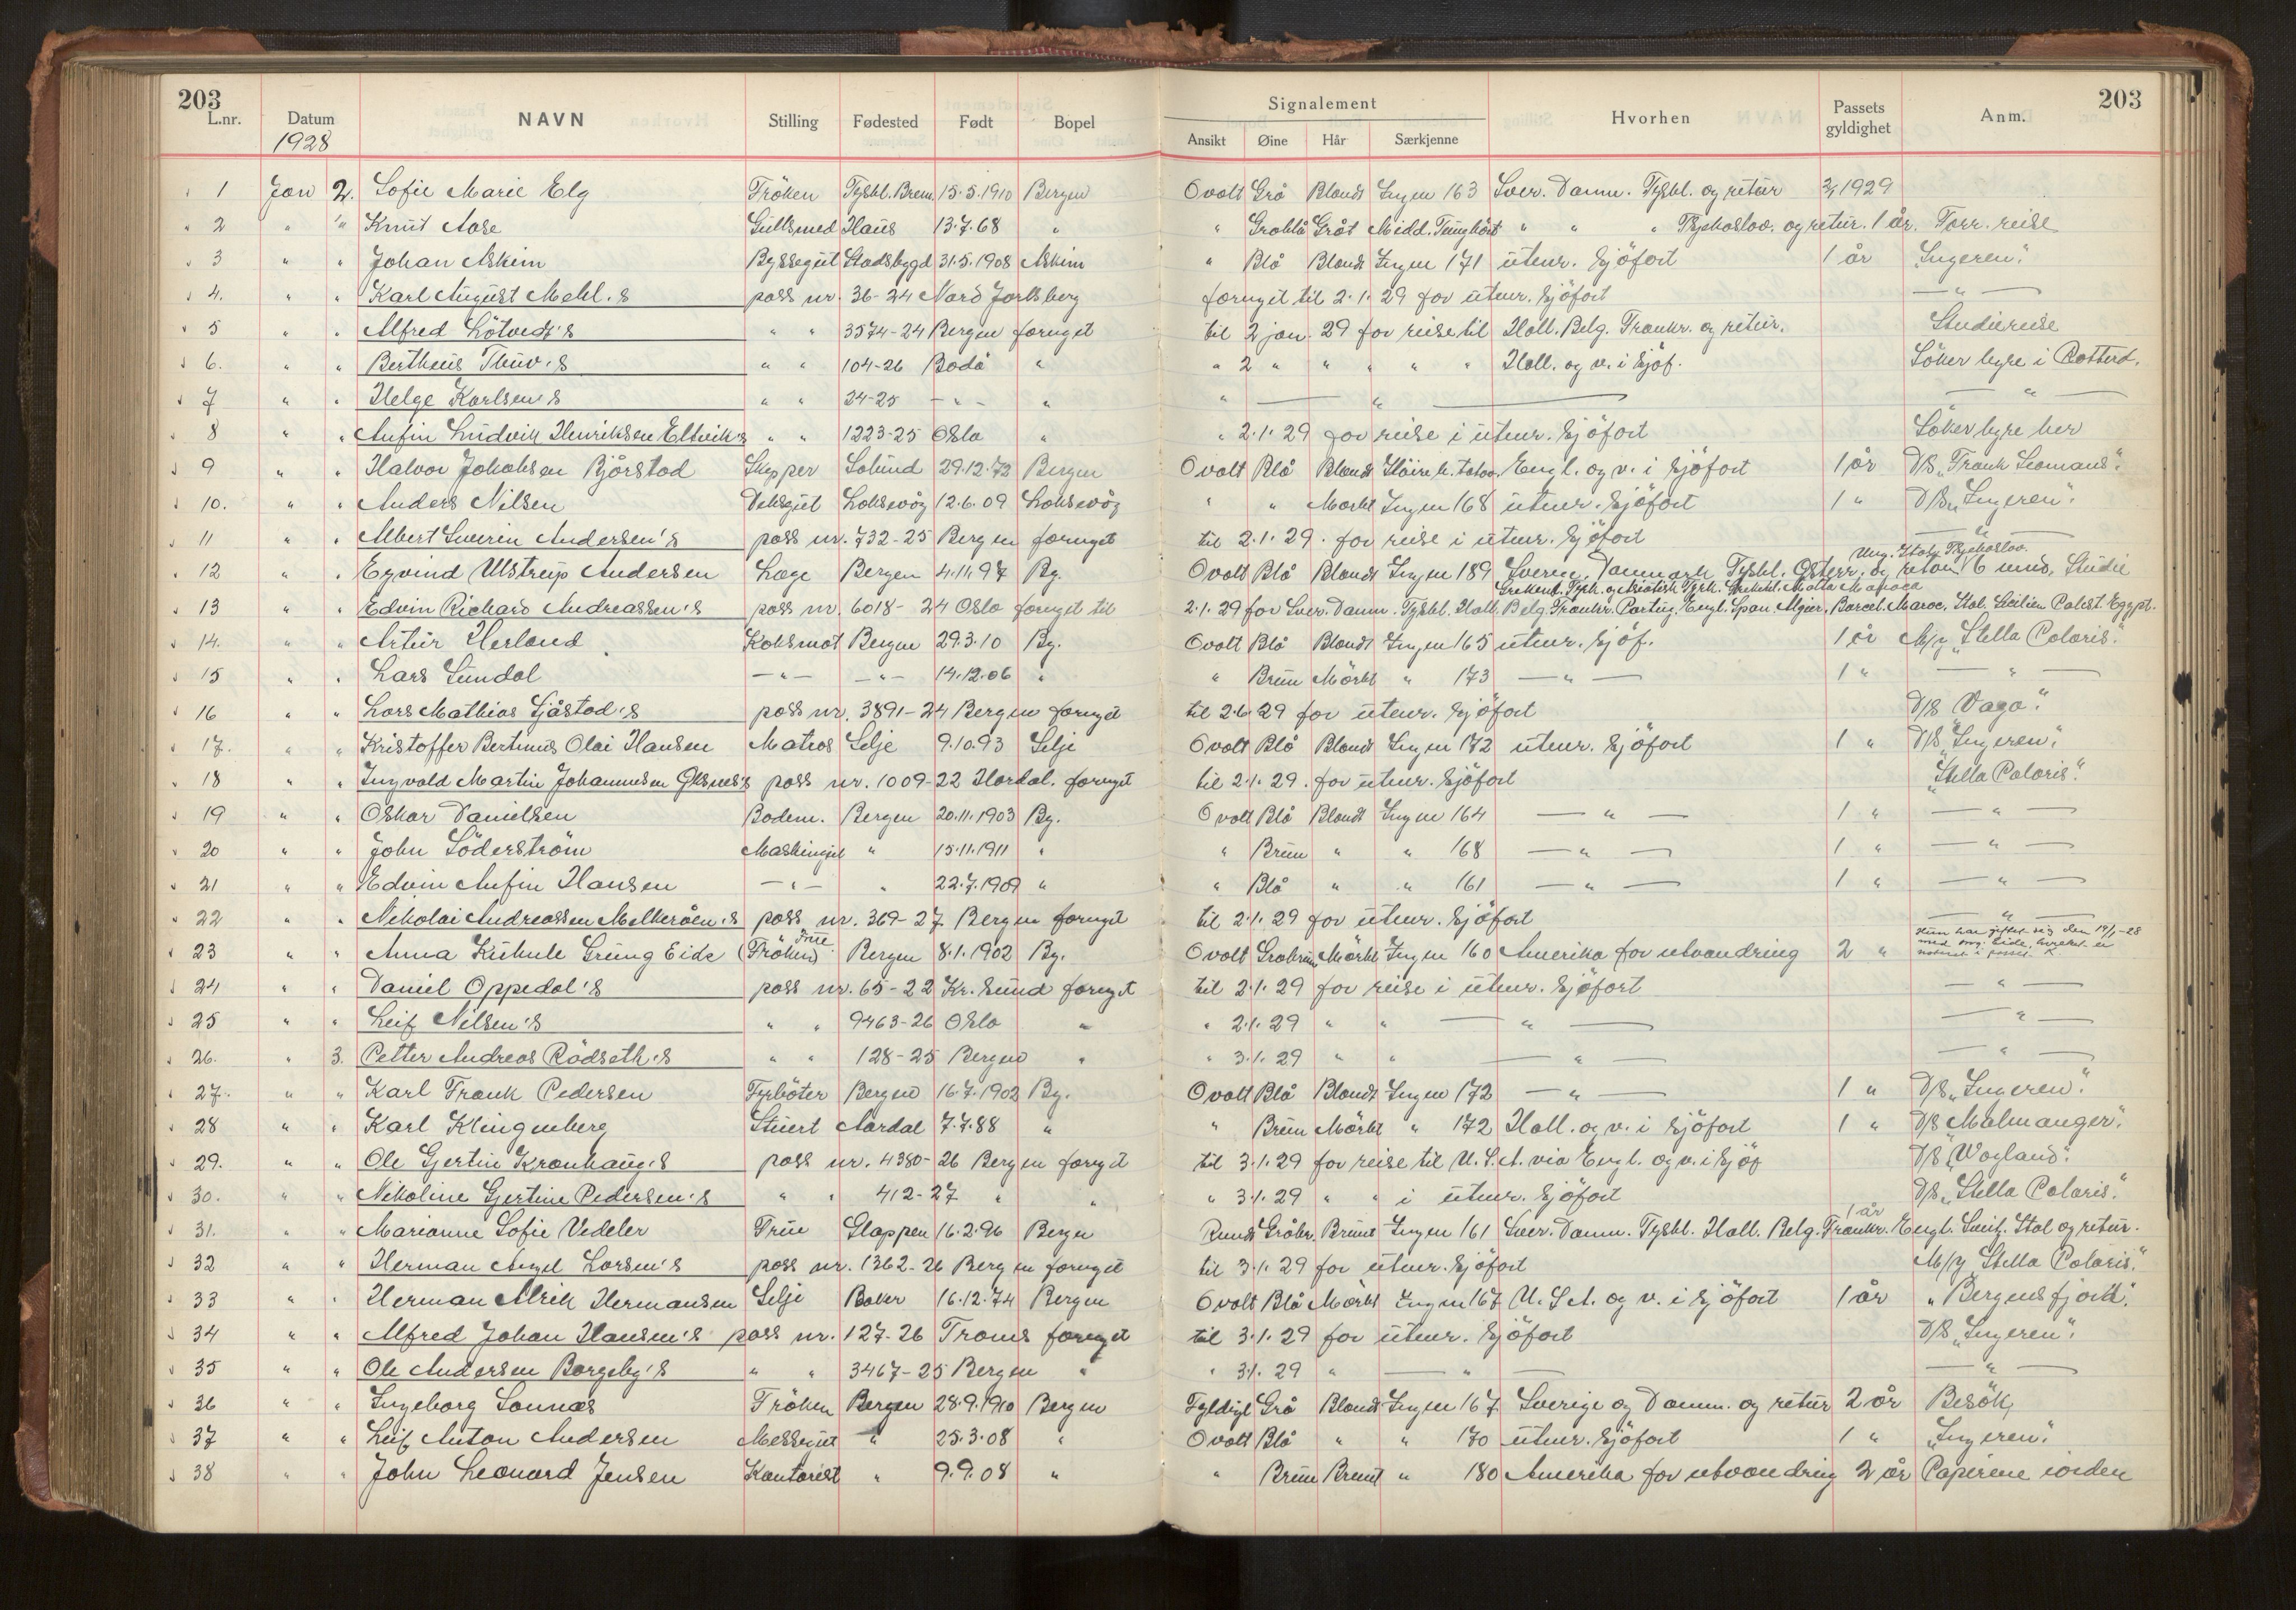 203
203
L.nr. Datum NAVN Stilling Fødested Født Bopel Signalement Hvorhen Passets gyldighet Anm.
1928 Ansikt Øine Hår Særkjenne
1 Jan 2. Sofie Marie Elg Fröken Tyskl. Brem. 15.5.1910 Bergen Ovalt Grå Blondt Ingen 163 Sver. Danm. Tyskl. og retur 2/1 1929
2 " " Knut Aase Gullsmed Haus 13.7.68 " " Gråblå Gråt Midd. Tunghört " " " Tsjekoslov. og retur. 1 år. Forr. reise
3 " " Johan Askim Byssegut Stadsbygd 31.5.1908 Askim " Blå Blondt Ingen 171 utenr. Sjöfart 1 år "Ingeren".
4. " " Karl August Mehl.s pass nr. 36-24 Nord Jarlsberg fornyet til 2.1.29 for utenr. Sjöfart — " —
5 " " Alfred Lötvedt's " " 3574-24 Bergen fornyet til 2 jan. 29 for reise til Holl. Belg. Frankr. og retur. Studiereise
6. " " Bertheus Thuv.s " " 104-26 Bodö " " 2 " " " " " Holl. og v. i Sjöf. Söker hyre i Rotterd.
7 " " Helge Karlsen's " " 24-25 — " — " " — " — — " —
8 " " Anfin Ludvik Henriksen Eltvik's " " 1223-25 Oslo " " 2.1.29 for reise i utenr. Sjöfart Söker hyre her
9 " " Halvor Jakobsen Bjørstad Skipper Solund 29.12.72 Bergen Ovalt Blå Blondt Höire h. tatov. Engl. og v. i Sjöfart 1 år D/S "Frank Seamans".
10. " " Anders Nilsen Deksgut Laksevåg 12.6.09 Laksevåg " " Mörkt Ingen 168 utenr. Sjöfart 1 " D/S "Ingeren".
11 " " Albert Severin Andersen's pass nr. 732-25 Bergen fornyet til 2.1.29. for reise i utenr. Sjöfart — " —
Ung. Italy. Tsjekoslov.
12 " " Eyvind Ulstrup Andersen Læge Bergen 4.11.97 Bg. Ovalt Blå Blondt Ingen 189 Sverige, Danmark Tyskl. Österr. og retour 6 mnd. Studie
Grekenl. Tyrk. og Asiatisk Tyrk. Malta
13 " " Edvin Richard Andreassen's pass nr. 6018-24 Oslo fornyet til 2.1.29 for Sver. Danm. Tyskl. Holl. Belg. Frankr. Portug. Engl. Span. Algier, Barcel. Maroc. Ital. Sicilien Palest. Egypt.
14. " " Artur Herland Koksmat Bergen 29.3.10 Bg. Ovalt Blå Blondt Ingen 165 utenr. Sjöf. 1 år M/y "Stella Polaris".
15 " " Lars Sundal — " — — " — 14.12.06 " " Brun Mörkt " 173 — " — 1 " — " —
16 " " Lars Mathias Sjåstad's pass nr. 3891-24 Bergen fornyet til 2.6.29 for utenr. Sjöfart D/S Vaga".
17. " " Kristoffer Bertinus Olai Hansen Matros Selje 9.10.93 Selje Ovalt Blå Blondt Ingen 172 utenr. Sjöfart 1 " D/S "Ingeren".
18 " " Ingvald Martin Johannesen Oksnes's pass nr. 1009-22 Hordal. fornyet til 2.1.29. for utenr. Sjöfart "Stella Polaris".
19 " " Oskar Danielsen Badem. Bergen 20.11.1903 Bg. Ovalt Blå Blondt Ingen 164 — " — 1 " — " —
20 " " John Söderström Maskingut " 15.11.1911 " " Brun " " 168 — " — 1 " — " —
21 " " Edvin Anfin Hansen — " — " 22.7.1909 " " Blå " " 161 — " — 1 " — " —
22 " " Nikolai Andreassen Melkeråen's pass nr. 369-27 Bergen fornyet til 2.1.29 for utenr. Sjöfart — " —
Frue Hun har giftet sig den 14/1-28
23 " " Anna Grung Eide (Fröken) Bergen 8.1.1902 Bg. Ovalt Gråbrun Mörkt Ingen 160 Amerika for utvandring 2 " med ing. Eide, hvilket er
notert i passet.
24 " " Daniel Oppedal's pass nr. 65-22 Kr. Sund fornyet til 2.1.29 for reise i utenr. Sjöfart — " —
25 " " Leif Nilsen's " " 9463-26 Oslo " " 2.1.29 " " — " — — " —
26. " 3. Petter Andreas Rödseth's " " 128-25 Bergen " " 3.1.29 " " — " — — " —
27. " " Karl Frank Pedersen Fyrböter Bergen 16.7.1902 Bg. Ovalt Blå Blondt Ingen 172 — " — 1 " D/S "Ingeren".
28 " " Karl Klingenberg Stuert Aardal 7.7.88 " " Brun Mörkt " 172 Holl. og v. i Sjöfart 1 " D/S Malmanger".
29. " " Ole Gjertin Kronhaug's pass nr. 4380-26 Bergen fornyet til 3.1.29 for reise til U.S.A. via Engl. og v. i Sjöf D/S "Vogland".
30. " " Nikoline Gjertine Pedersen's " " 412-27 " " " 3.1.29 " " i utenr. Sjöfart D/S "Stella Polaris".
1 år
31. " " Marianne Sofie Vedeler Frue Gloppen 16.2.96 Bergen Rundt Gråbr. Brunt Ingen 161 Sver. Danm. Tyskl. Holl. Belg. Frankr. Engl. Sveitz. Ital og retur.
32 " " Herman Angel Larsen's pass nr. 1362-26 Bergen fornyet til 3.1.29 for utenr. Sjöfart M/y Stella Polaris".
33 " " Herman Alrik Hermansen Selje Baker 16.12.74 Bergen Ovalt Blå Mörkt Ingen 167 U.S.A. og v. i Sjöfart 1 år "Bergensfjord".
34 " " Alfred Johan Hansen's pass nr. 127-26 Troms fornyet til 3.1.29 for utenr. Sjöfart D/S "Ingeren".
35 " " Ole Andersen Borgeby's " " 3467-25 Bergen " " 3.1.29 " — " — — " —
36 " " Ingeborg Sannæs Fröken Bergen 28.9.1910 Bergen Fyldigt Grå Blondt Ingen 167 Sverige og Danm. og retur 2 år Besök
37 " " Leif Anton Andersen Messegut " 25.3.08 " Ovalt Blå " " 170 utenr. Sjöfart 1 " "Ingeren".
38 " " John Leonard Jensen Kontorist " 9.9.08 " " Brun Brunt " 180 Amerika for utvandring 2 år Papirene iorden